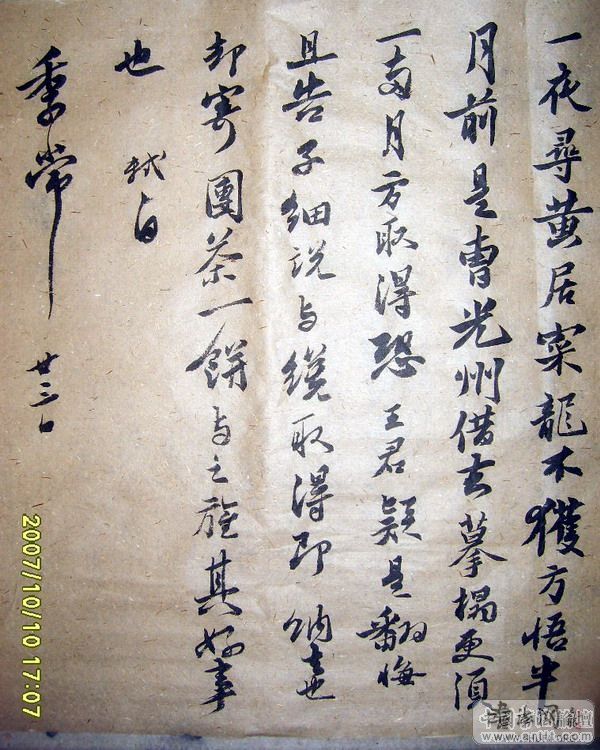 一夜尋黄居寀龍不獲方悟半
月前是曹光州借去摹搨更須
一兩月方取得恐王君疑是翻悔
且告子細説与纔取得即納去也
却寄團茶一餅与之旌其好事
也 軾白
季常 廿三日
2007/10/10 17:07